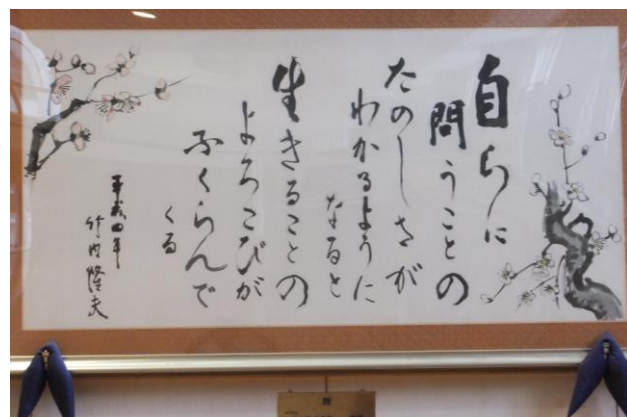 自らに
問うことの
たのしさが
わかるように
なると
生きることの
よろこびが
ふくらんで
くる
平成四年
竹内隆夫